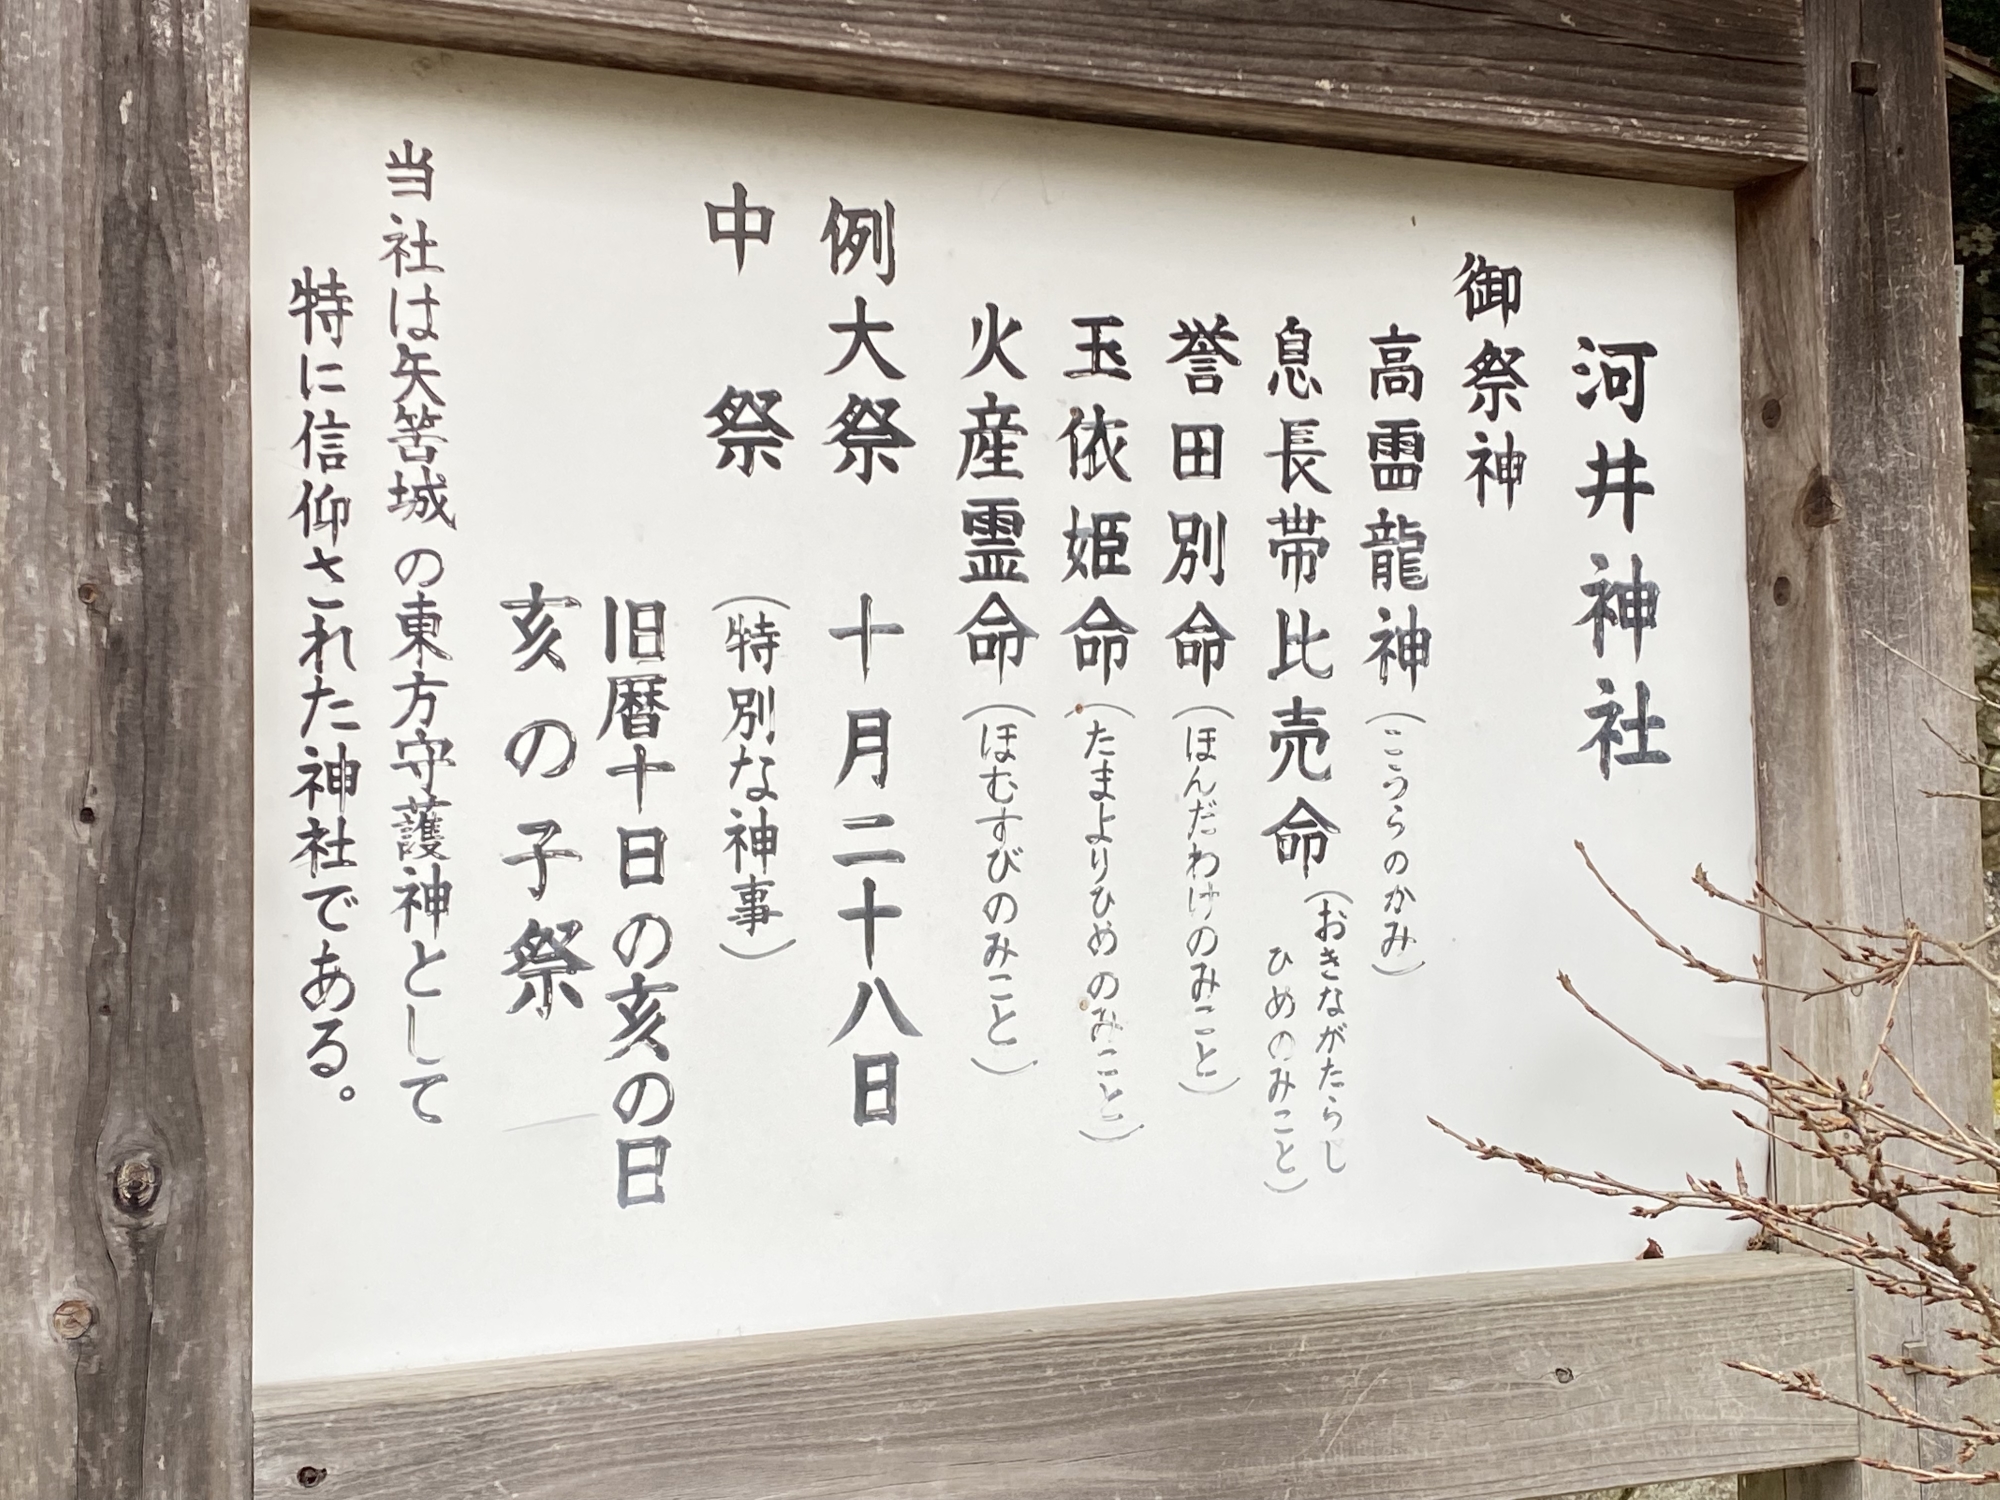 河井神社
御祭神
高靇龍神（こうらのかみ）
息長帯比売命（おきながたらし
ひめのみこと）
誉田別命（ほんだわけのみこと）
玉依姫命（たまよりひめのみこと）
火産霊命（ほむすびのみこと）
例大祭 十月二十八日
中祭（特別な神事）
旧暦十日の亥の日
亥の子祭
当社は矢筈城の東方守護神として
特に信仰された神社である。